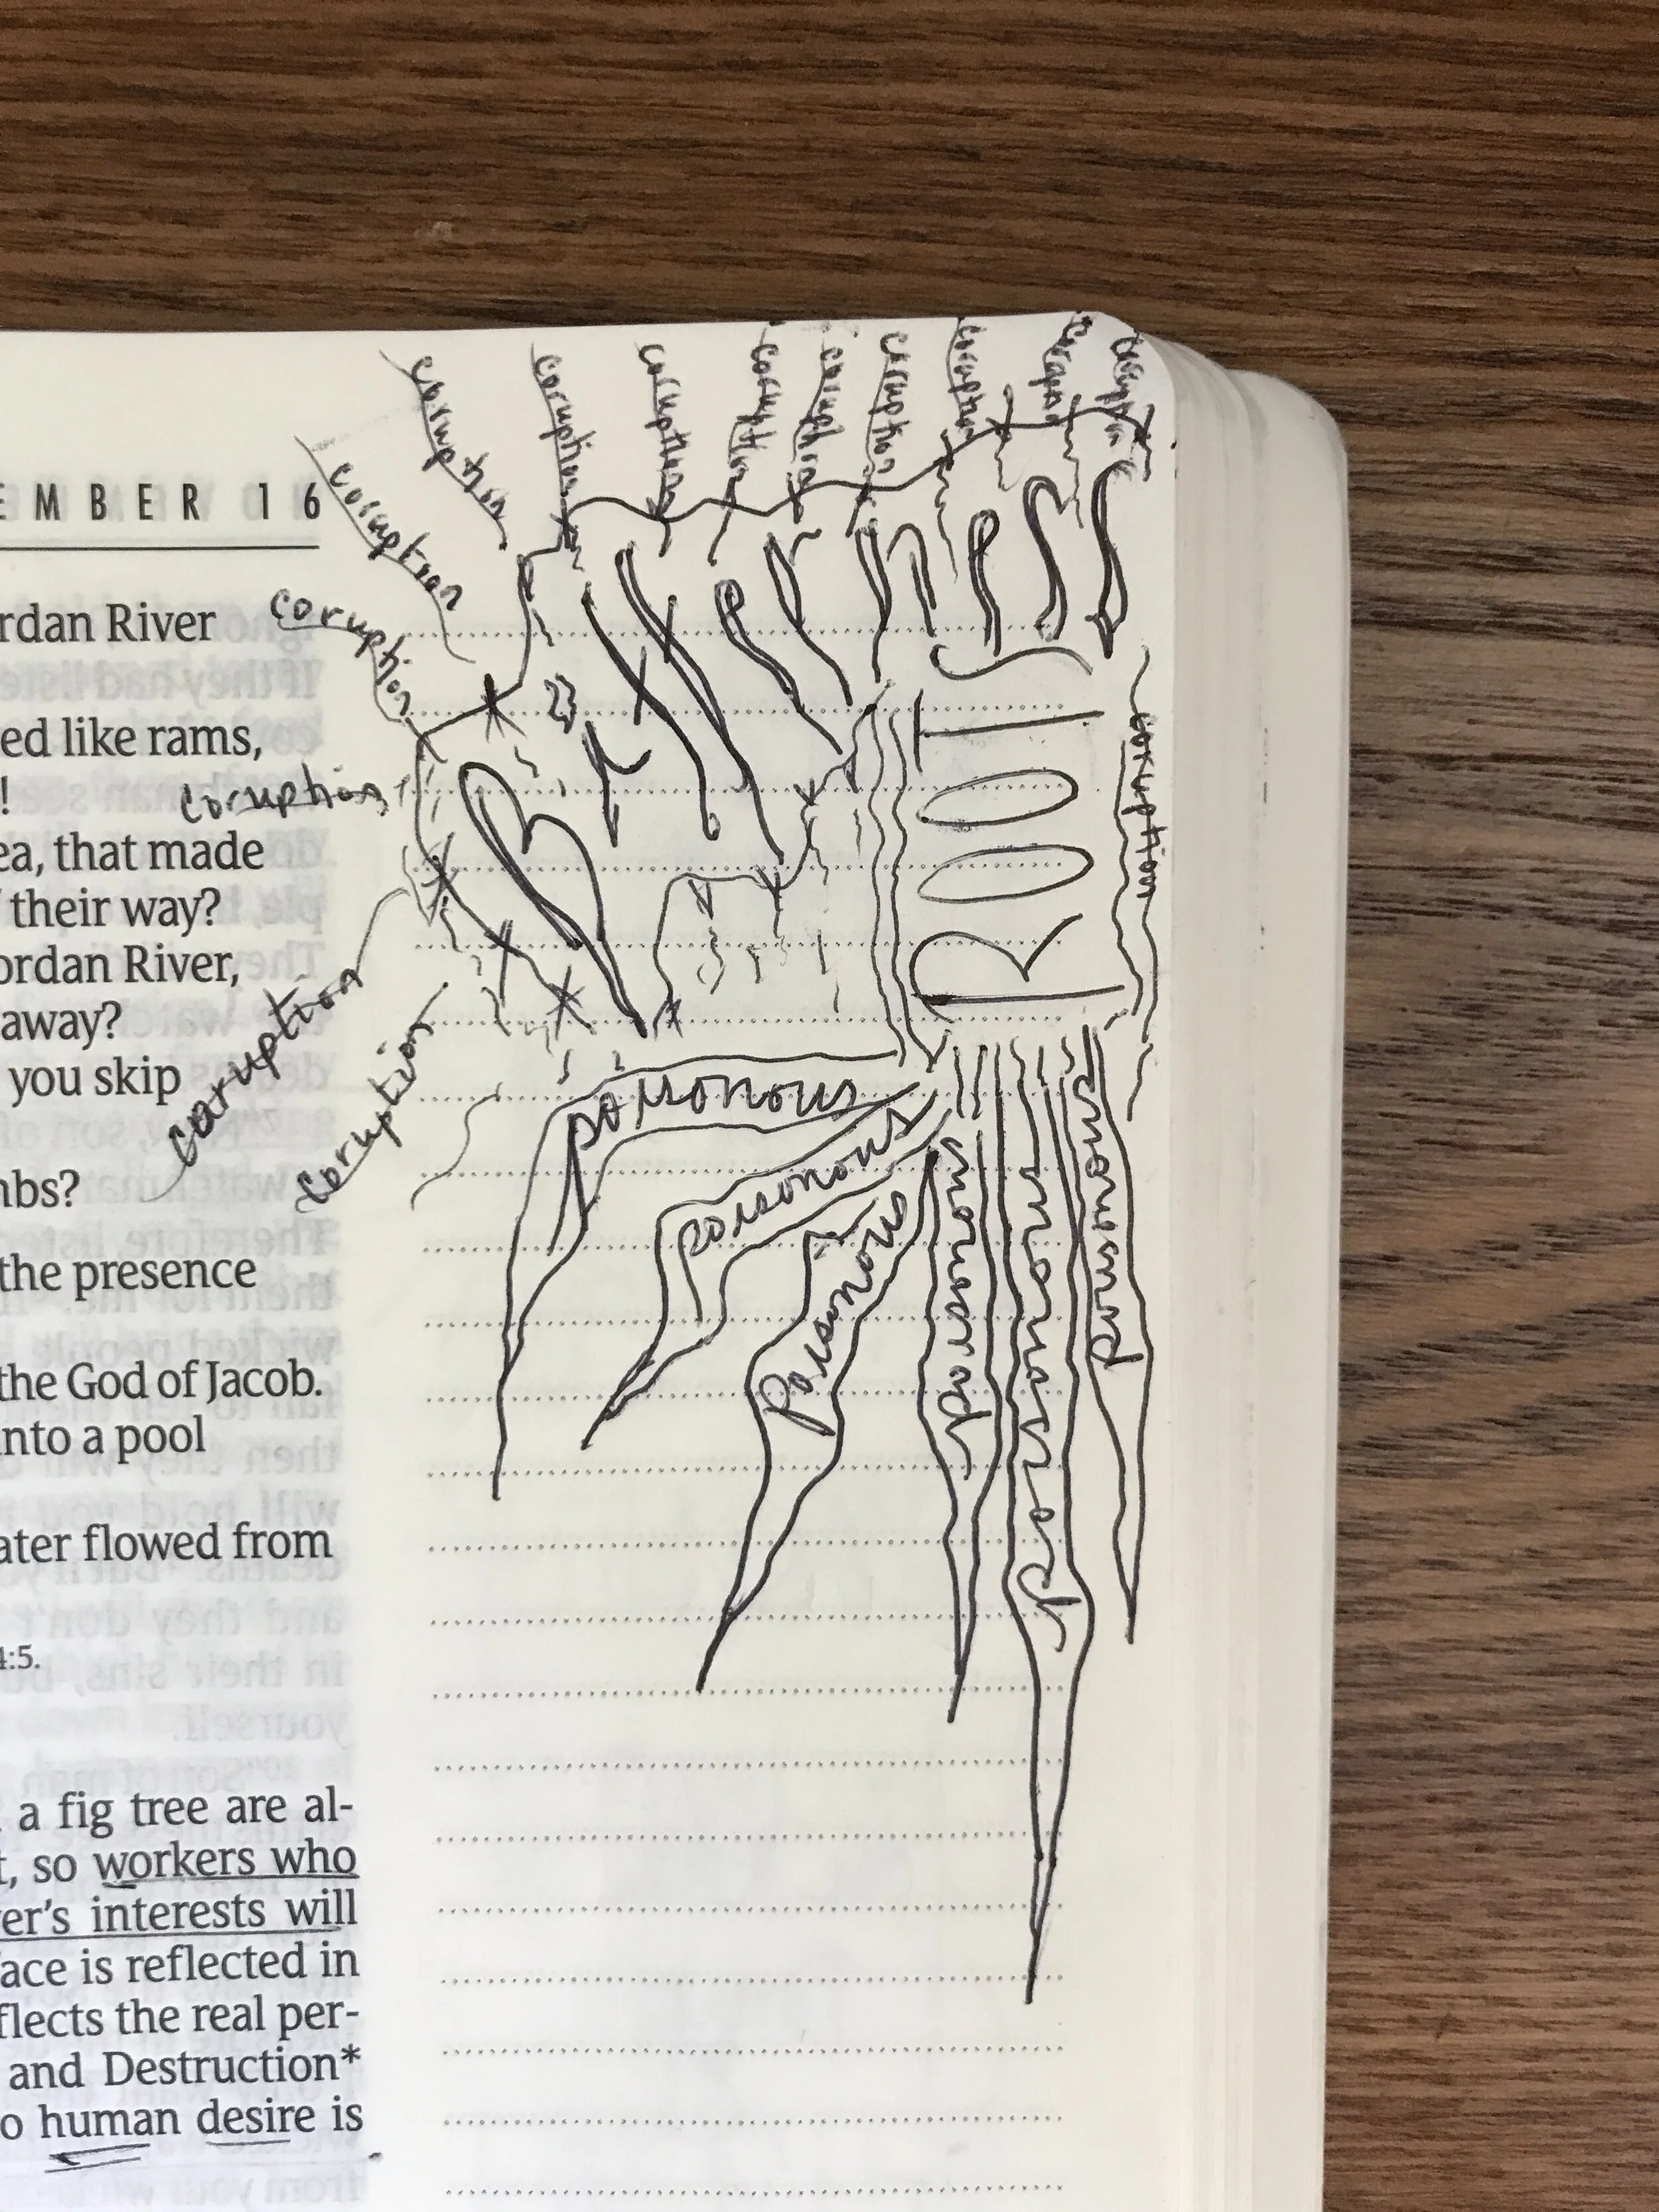 EMBER 16
rdan River
ed like rams,
!
ea, that made
their way?
ordan River,
away?
you skip
mbs?
the presence
the God of Jacob.
nto a pool
ater flowed from
4:5.
a fig tree are al-
t, so workers who
er's interests will
ace is reflected in
flects the real per-
and Destruction*
o human desire is
coruption
coruption
coruption
coruption
coruption
coruption
coruption
coruption
coruption
coruption
coruption
coruption
coruption
coruption
Bitterness
ROOT
coruption
poisonous
poisonous
Poisonous